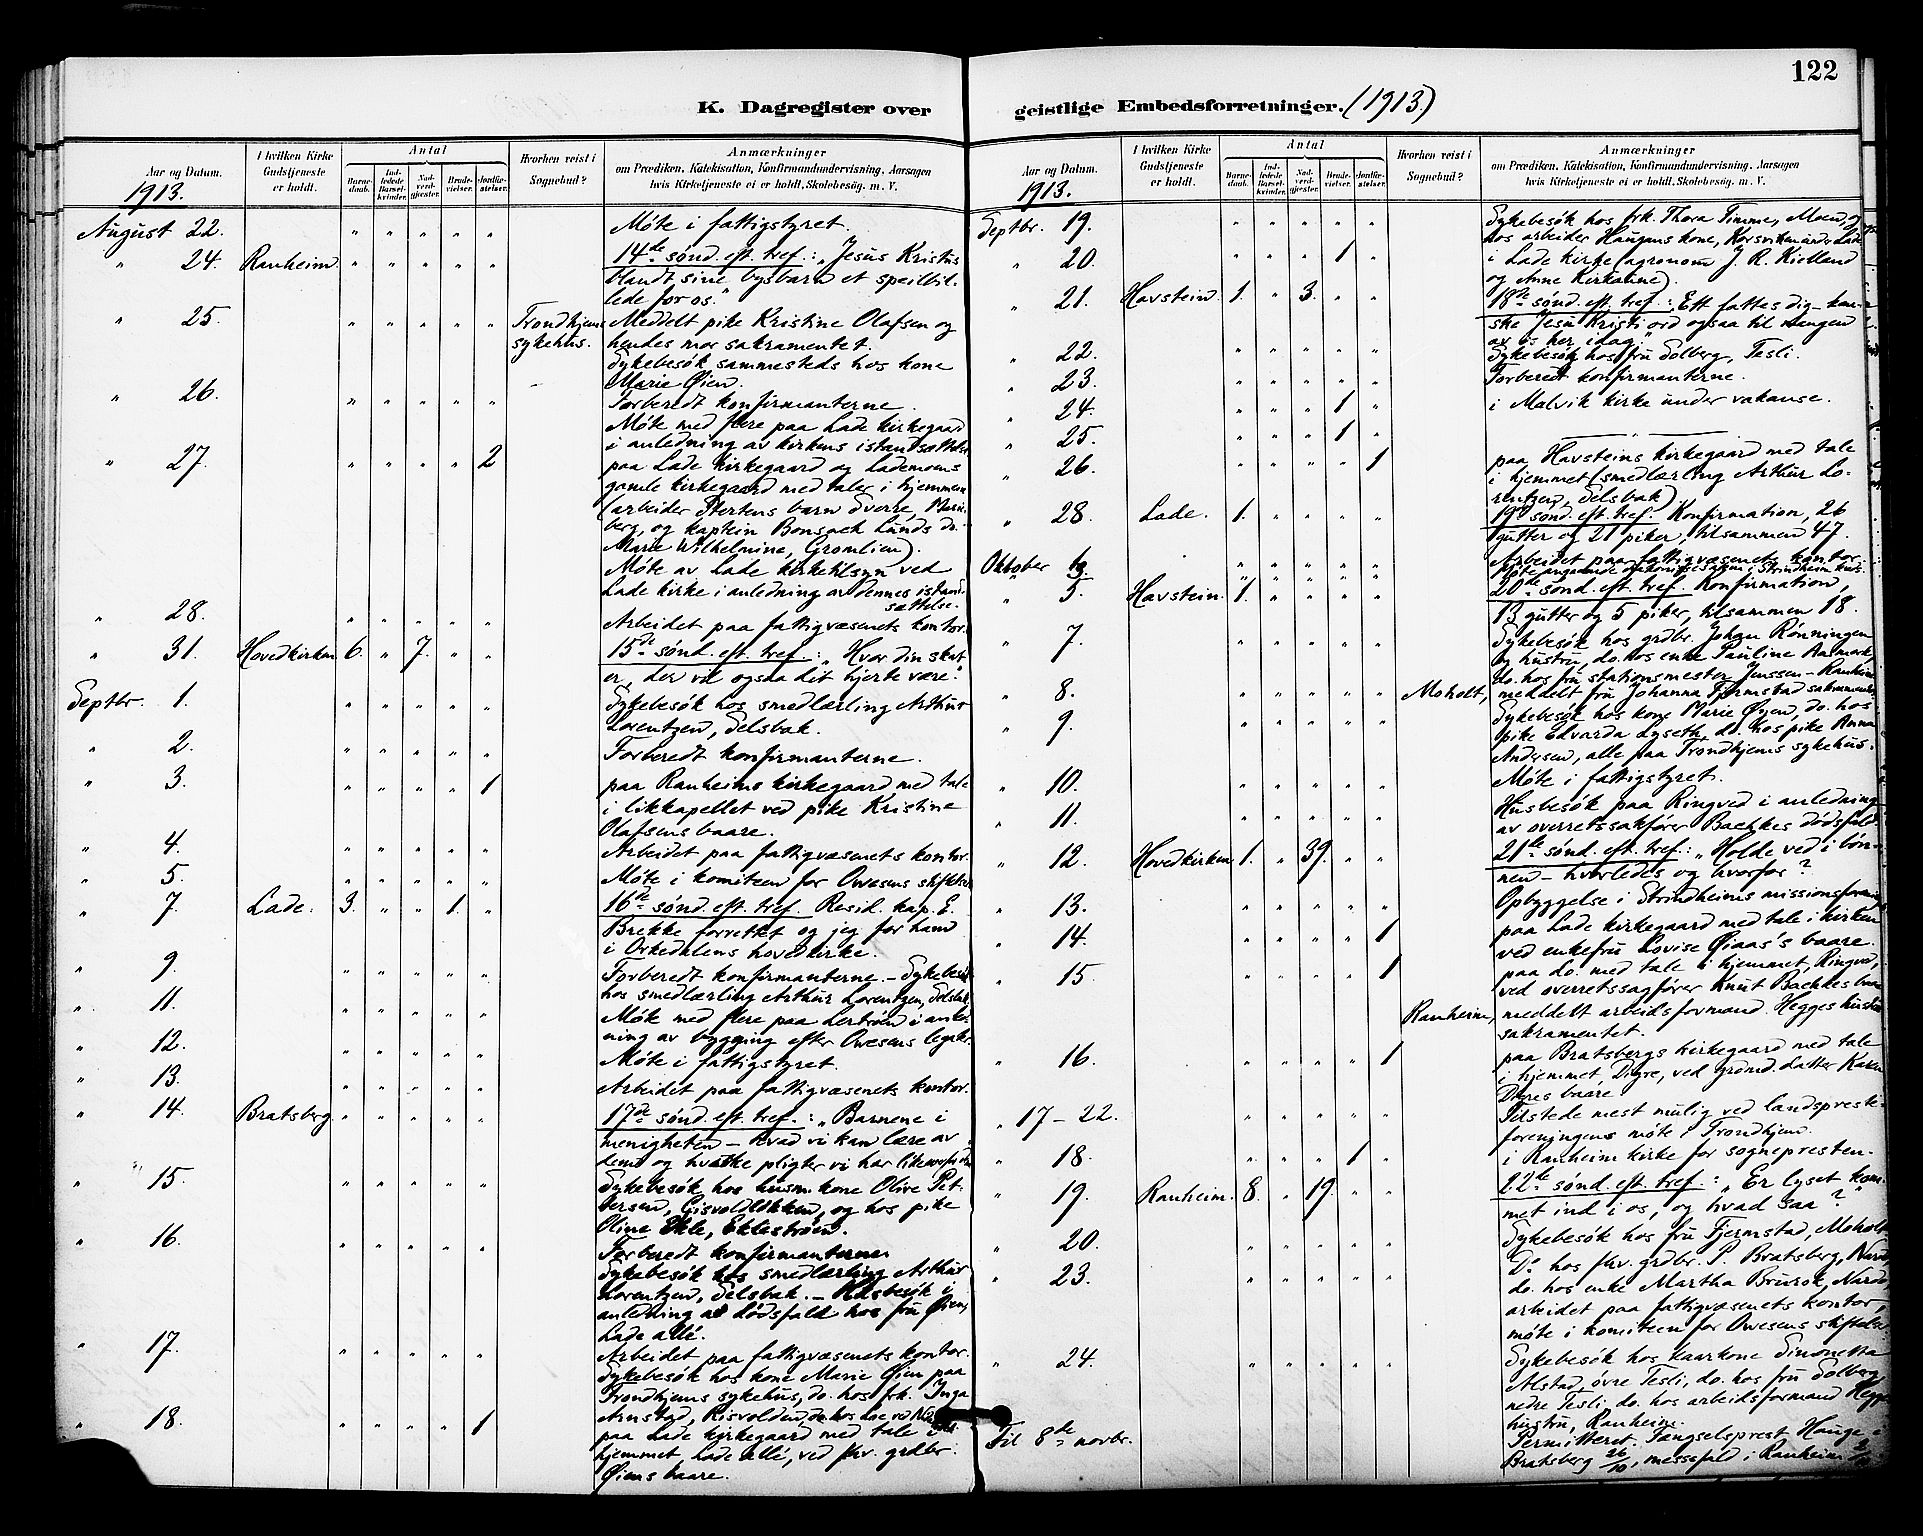 122
K. Dagregister over
geistlige Embedsforretninger. (1913)
Aar og Datum.
I hvilken Kirke Gudstjeneste er holdt.
Antal
Barnedaab.
Indledede Barselkvinder.
Nadverdgjester.
Brudevielser.
Jordfæstelser.
Hvorhen reist i Sognebud?
Anmærkninger
om Prædiken, Katekisation, Konfirmandundervisning, Aarsagen
hvis Kirketjeneste ei er holdt, Skolebesøg, m. V.
1913.
August 22. " " " " " Møte i fattigstyret.
" 24. Ranheim. " " " " " 14de sønd. eft. tref.: "Jesus Kristus
blandt sine bysbarn et speilbil-
lede for os."
" 25. " " " " " Trondhjems Meddelt pike Kristine Olafsen og
sykehus. hendes mor sakramentet.
Sykebesøk sammesteds hos kone
Marie Øien.
" 26. " " " " " Forberedt konfirmanterne.
Møte med flere paa Lade kirkegaard
i anledning av kirkens istandsættelse
" 27. " " " " 2 paa Lade kirkegaard og Lademoens
gamle kirkegaard med taler i hjemmene
(arbeider Stertens barn Sverre,
berg, og kaptein Bonsach Lunds d.
Marie Wilhelmine, Gromlien).
Møte av Lade kirketilsyn ved
Lade kirke i anledning av dennes istand-
sættelse.
" 28. " " " " " Arbeidet paa fattigvæsenets kontor.
" 31. Hovedkirken 6. " 7. " " 15de sønd. eft. tref.: "Hvor din skat
er, der vil ogsaa dit hjerte være."
Septbr. 1. " " " " " Sykebesøk hos smedlærling Arthur
Lorentzen, Selsbak.
" 2. " " " " " Forberedt konfirmanterne.
" 3. " " " " 1 paa Ranheims kirkegaard med tale
i likkapellet ved pike Kristine
Olafsens baare.
" 4. " " " " " Arbeidet paa fattigvæsenets kontor.
" 5. " " " " " Møte i komiteen for Owesens stiftelse
" 7. Lade. 3. " " 1. " 16de sønd. eft. tref. Resid. kap. E.
Brekke forrettet og jeg for ham
i Orkedalens hovedkirke.
" 9. " " " " " Forberedt konfirmanterne. - Sykebesøk
hos smedlærling Arthur Lorentzen, Selsbak.
" 11. " " " " " Møte med flere paa Leström i anled-
ning av bygging efter Owesens legater.
" 12. " " " " " Møte i fattigstyret.
" 13. " " " " " Arbeidet paa fattigvæsenets kontor.
" 14. Bratsberg. " " " " " 17de sønd. eft. tref.: "Barnene i
menigheten - hvad vi kan lære av
dem og hvilke pligter vi har likeoverfor dem
" 15. " " " " " Sykebesøk hos husm. kone Olive Pet-
tersen, og hos pike
Oline Ekle, Eklestrøen.
" 16. " " " " " Forberedt konfirmanterne
Sykebesøk hos smedlærling Arthur
Lorentzen, Selsbak. - Husbesøk i
anledning av dødsfald hos fru Øien,
Lade allé.
" 17. " " " " " Arbeidet paa fattigvæsenets kontor.
Sykebesøk hos kone Marie Øien paa
Trondhjems sykehus, do. hos frk. Inga
Arnstad, Risvolden, do. hos
" 18. " " " " 1 paa Lade kirkegaard med tale i
hjemmet, Lade allé, ved fhv. grdbr.
Øiens baare.
Aar og Datum.
I hvilken Kirke Gudstjeneste er holdt.
Antal
Barnedaab.
Indledede Barselkvinder.
Nadverdgjester.
Brudevielser.
Jordfæstelser.
Hvorhen reist i Sognebud?
Anmærkninger
om Prædiken, Katekisation, Konfirmandundervisning, Aarsagen
hvis Kirketjeneste ei er holdt, Skolebesøg, m. V.
1913.
Septbr. 19. " " " " " Sykebesøk hos frk. Thora Timme, Moen, og
hos arbeider Haugans kone, Korsviken under Lade
" 20. " " " 1 " i Lade kirke (agronom J. R. Kielland
og Anne Kirkaune).
" 21. Havstein. 1. " 3. " " 18de sønd. eft. tref.: Ett fattes dig - kan-
ske Jesu Kristi ord ogsaa til mangen
av os her idag."
" 22. " " " " " Sykebesøk hos fru Solberg, Tesli.
" 23. " " " " " Forberedt konfirmanterne.
" 24. " " " 1 " i Malvik kirke under vakanse.
" 25. " " " 1 "
" 26. " " " " 1 paa Havsteins kirkegaard med tale
i hjemmet (smedlærling Arthur Lo-
rentzen, Selsbak).
" 28. Lade. 1. " " " " 19de sønd. eft. tref. Konfirmation, 26
gutter og 21 piker, tilsammen 47.
Oktober " " " " " Arbeidet paa fattigvæsenets kontor.
" 3. " " " " " Møte angaaende i Strindheim
" 5. Havstein. 1. " " " " 20de sønd. eft. tref. Konfirmation,
13 gutter og 5 piker, tilsammen 18.
" 7. " " " " " Sykebesøk hos grdbr. Johan Rønningen
og hustru, do. hos enke Pauline
do. hos fru stationsmester Jenssen - Ranheim
" 8. " " " " " Moholt, meddelt fru Johanna Fjermstad sakramentet.
" 9. " " " " " Sykebesøk hos kone Marie Øien, do. hos
pike Edvarda Lyseth, do. hos pike Anna
Andersen, alle paa Trondhjems sykehus.
" 10. " " " " " Møte i fattigstyret.
" 11. " " " " " Husbesøk paa Ringved i anledning
av overretssakfører Bachkes dødsfald
" 12. Hovedkirken. 1. " 39. " " 21de sønd. eft. tref.: "Holde ved i bøn-
nen - hvorledes og hvorfor?
" 13. " " " " " Opbyggelse i Strindheims missionsforening
" 14. " " " " 1 paa Lade kirkegaard med tale i kirken
ved enkefru Lovise Øiaas's baare.
" 15. " " " " 1 paa do. med tale i hjemmet, Ringved,
ved overretssagfører Knut Bachkes baare
Ranheim, meddelt arbeidsformand Hegges hustru
sakramentet.
" 16. " " " " 1 paa Bratsbergs kirkegaard med tale
i hjemmet, Digre, ved grdmd. datter Karen
Digres baare
" 17-22. " " " " " Tilstede mest mulig ved landspreste-
foreningens møte i Trondhjem.
" 18. " " " 1 " i Ranheim kirke for sognepresten.
" 19. Ranheim. 8. " 19. " " 22de sønd. eft. tref.: "Er lyset kom-
met ind i os, og hvad saa?"
" 20. " " " " " Sykebesøk hos fru Fjermstad, Moholt
" 23. " " " " " Do hos fhv. grdbr. P. Bratsberg, Nardo,
do. hos enke Martha Brurok, Nardo
arbeidet paa fattigvæsenets kontor,
møte i komiteen for Owesens stiftelse.
" 24. " " " " " Sykebesøk hos kaarkone Simonetta
Alstad, øvre Tesli, do. hos fru Solberg
nedre Tesli, do. hos arbeidsformand Hegges
hustru, Ranheim.
Til 8de novbr. Permitteret. Fængselsprest Hauge i
Bratsberg 26/10, messefald i Ranheim